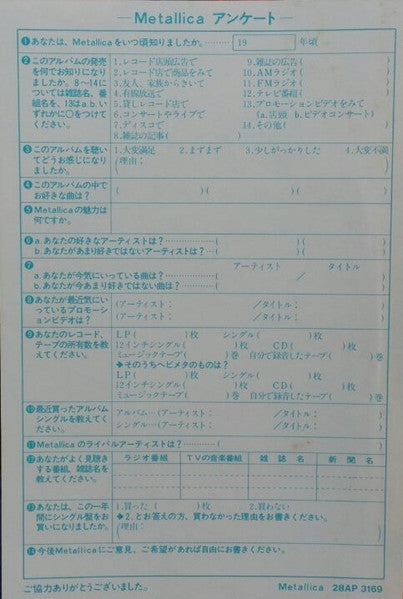 —Metallica アンケート—
❶あなたは、Metallicaをいつ頃知りましたか。 19 年頃
❷このアルバムの発売を何でお知りになりましたか。8〜14については雑誌名、番組名を、13はa.b.いずれかに○をつけてください。
1.レコード店頭広告で
2.レコード店で商品をみて
3.友人、家族からきいて
4.有線放送で
5.貸しレコード店で
6.コンサートやライブで
7.ディスコで
8.雑誌の記事( )
9.雑誌の広告( )
10.AMラジオ( )
11.FMラジオ( )
12.テレビ番組( )
13.プロモーションビデオをみて
(a.店頭 b.ビデオコンサート)
14.その他( )
❸このアルバムを聴いてどうお感じになりましたか。
1.大変満足 2.まずまず 3.少しがっかりした 4.大変不満
(理由: )
❹このアルバムの中でお好きな曲は?
( )( )( )
❺Metallicaの魅力は何ですか。
❻a.あなたの好きなアーティストは?…………( )( )
b.あなたがあまり好きではないアーティストは?…( )( )
❼ アーティスト タイトル
a.あなたが今気にいっている曲は?…………( / )
b.あなたが今あまり好きではない曲は?……( )
❽あなたが最近気にいっているプロモーションビデオは?
(アーティスト: /タイトル: )
(アーティスト: /タイトル: )
❾あなたのレコード、テープの所有数を教えてください。
LP( )枚 シングル( )枚
12インチシングル( )枚 CD( )枚
ミュージックテープ( )巻 自分で録音したテープ( )巻
◆そのうちヘビメタのものは?
LP( )枚 シングル( )枚
12インチシングル( )枚 CD( )枚
ミュージックテープ( )巻 自分で録音したテープ( )巻
❿最近買ったアルバムシングルを教えてください。
アルバム…(アーティスト: /タイトル: )
シングル…(アーティスト: /タイトル: )
⓫Metallicaのライバルアーティストは?…( )
⓬あなたがよく見聴きする番組、雑誌名を教えてください。
ラジオ番組 TVの音楽番組 雑誌名 新聞名
⓭あなたは、この一年間にシングル盤をお買いになりましたか。
1.買った( )枚 2.買わない
◆2.とお答えの方、買わなかった理由をお書きください。
(理由: )
⓮今後Metallicaにご意見、ご希望があれば自由にお書きください。
ご協力ありがとうございました。 Metallica 28AP 3169